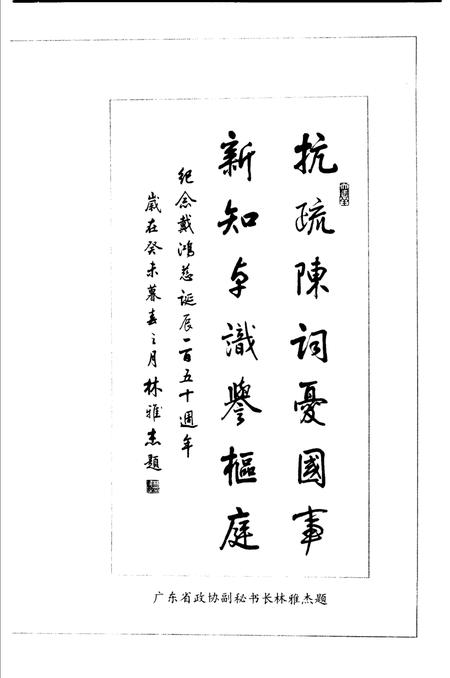 抗疏陳詞憂國事
新知卓識譽樞庭
紀念戴鴻慈誕辰一百五十週年
歲在癸未暮春之月林雅杰題
广东省政协副秘书长林雅杰题